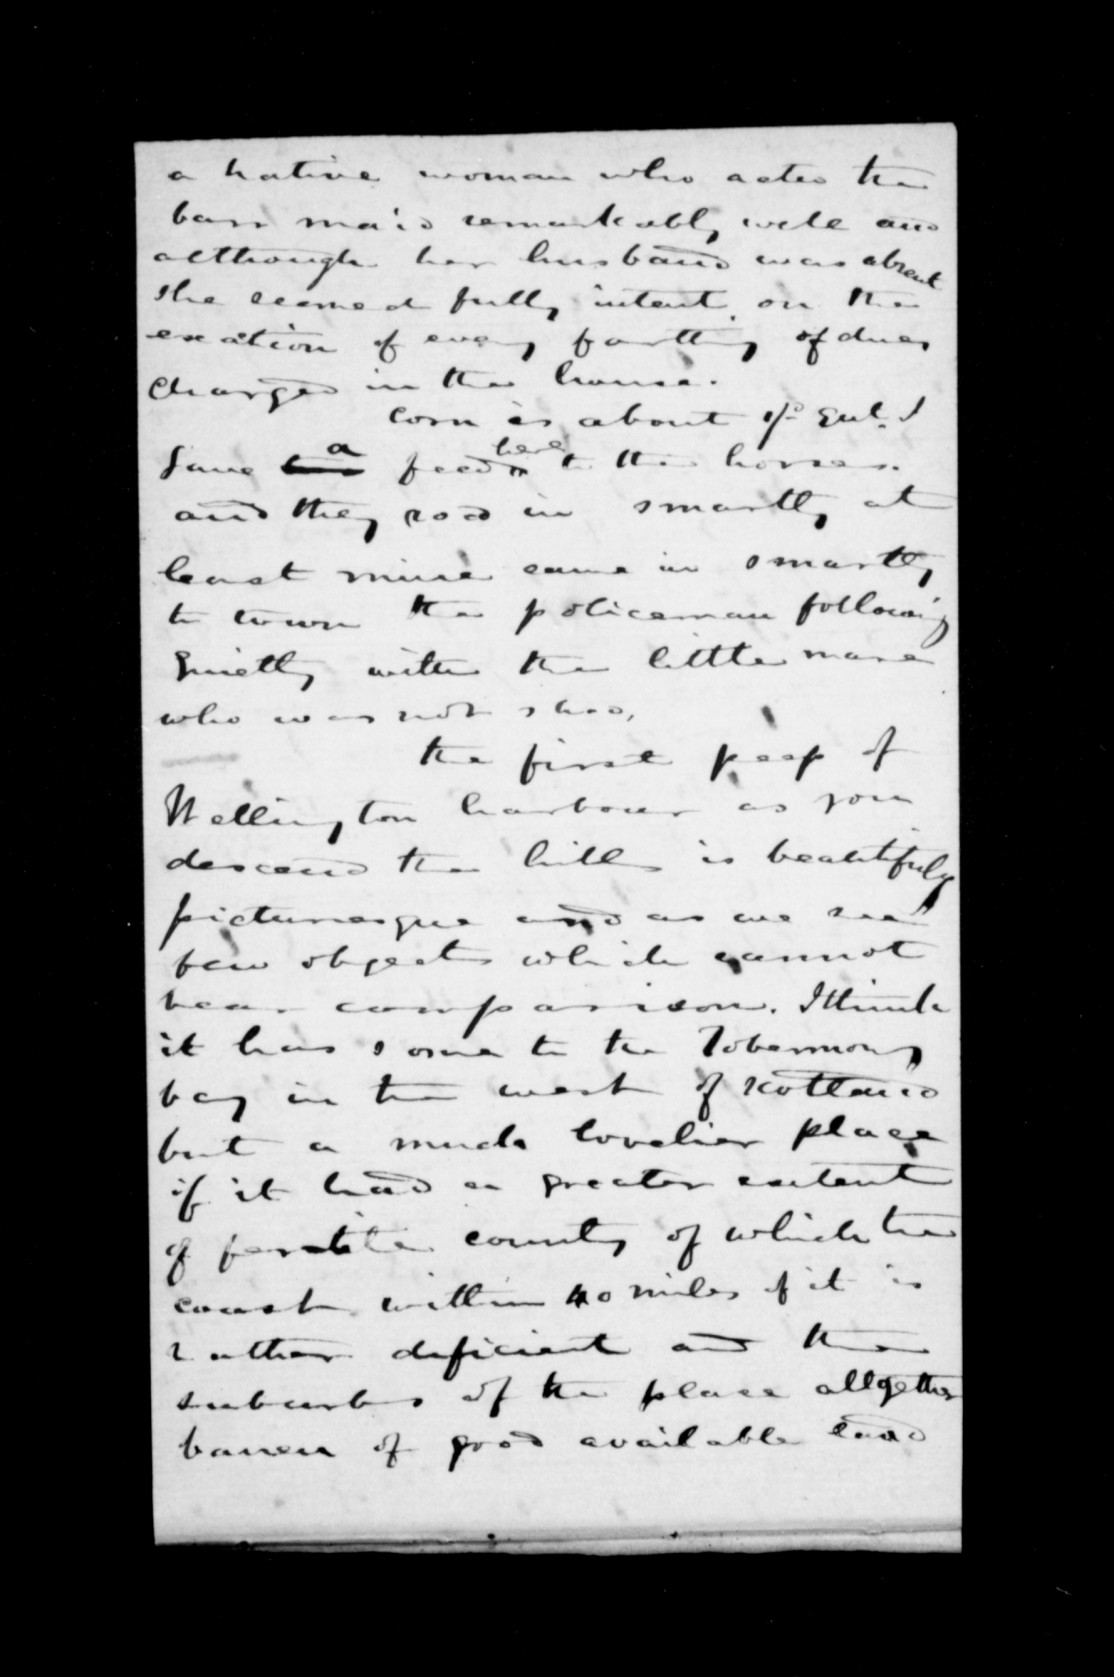 a native woman who acted the
barr maid remarkably well and
although her husband was absent
she seemed fully intent on the
exaction of every farthing of dues
charged in the house.
Corn is about 1/- I
gave a feed here to the horses.
and they rod in smartly at
least mine came in smartly
to town the policeman following
quietly with the little mare
who was not shod,
the first peep of
Wellington harbour as you
descend the hills is beautifuly
picturesque and as we see
few objects which cannot
bear comparison. I think
it has some to the Tobermory
bay in the west of Scotland
but a much lovelier place
if it had a greater extent
of fertile county of which the
coast within 40 miles of it is
rather deficient and the
suburbs of the place allgether
barren of good available land